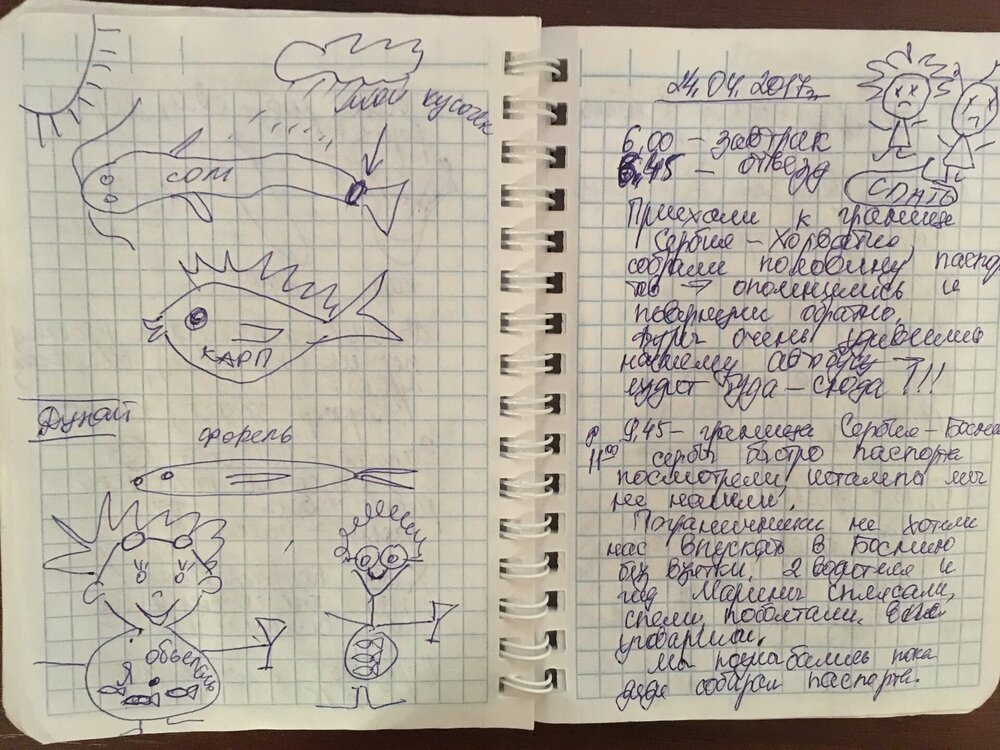 мой кусочек
сом
КАРП
Дунай
форель
Я
Объелись
24.04.2017г.
6,00 – завтрак
6,45 – отъезд
СПАТЬ
Приехали к границе
Сербия – Хорватия,
собрали половину паспор
тов → опомнились и
повернули обратно.
очень удивились
нашему автобусу –
ездит туда – сюда !!!
9,45 – граница Сербия – Босния
11⁰⁰ сербы быстро паспорта
посмотрели, штампы мы
не нашли.
Пограничники не хотели
нас впускать в Боснию
без взятки, 2 водителя и
гид Марины сплясали,
спели, поболтали, еле
уговорили.
Мы поулыбались пока
дядя собирал паспорта.